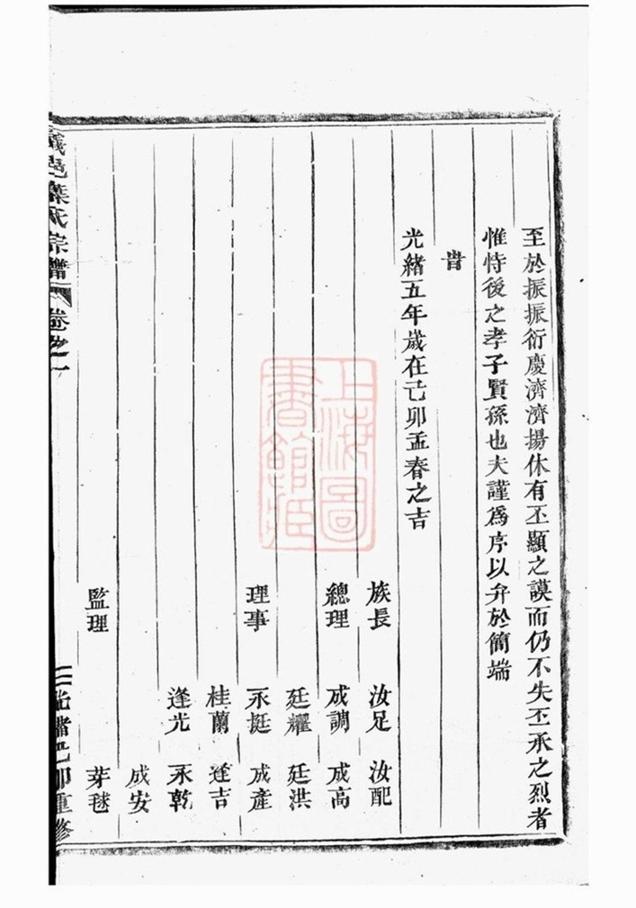 至於振振衍慶濟濟揚休有丕顯之謨而仍不失丕承之烈者
惟恃後之孝子賢孫也夫謹為序以弁於簡端
旹
光緒五年歲在己卯孟春之吉
族長 汝足 汝配
總理 成調 成高
廷耀 廷洪
理事 永挺 成產
桂蘭 逢吉
逢光 永乾
成安
監理 芽毬
義邑葉氏宗譜 卷之一 光緒己卯重修
上海圖書館藏